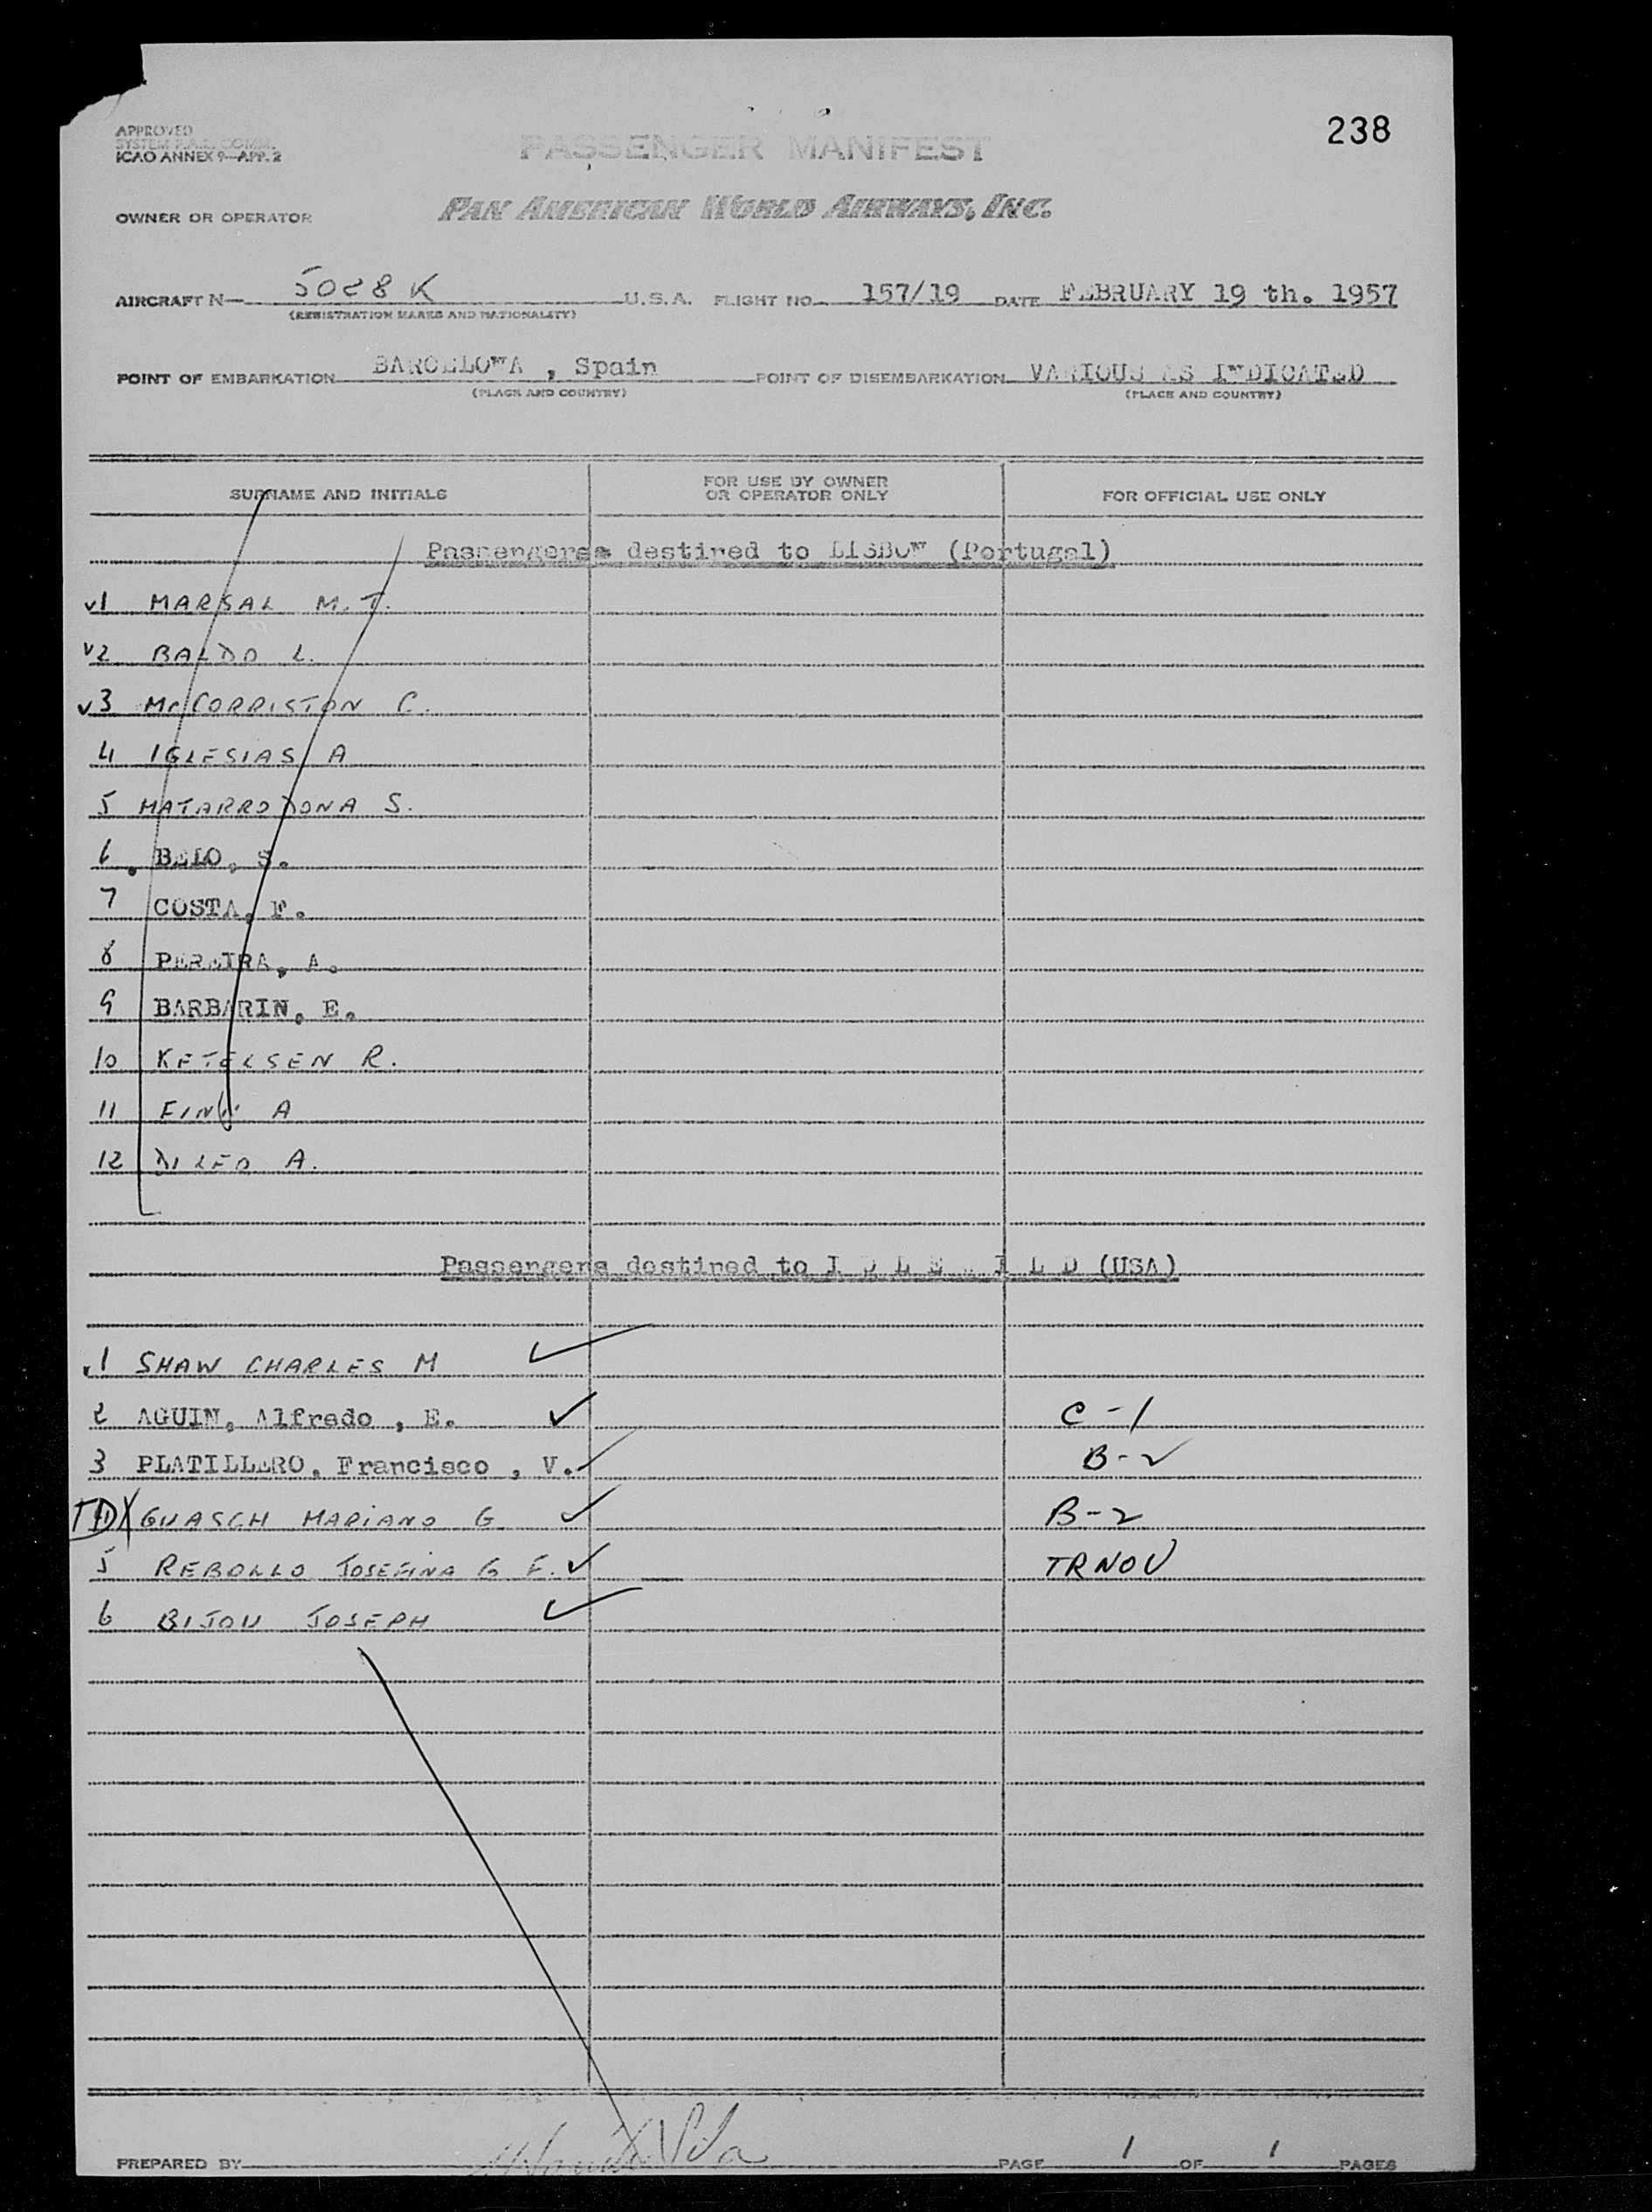 238
APPROVED
SYSTEM F.A.L. COMM.
ICAO ANNEX 9—APP. 2
PASSENGER MANIFEST
OWNER OR OPERATOR PAN AMERICAN WORLD AIRWAYS, INC.
AIRCRAFT N— 5028K U.S.A. FLIGHT NO. 157/19 DATE FEBRUARY 19 th. 1957
(REGISTRATION MARKS AND NATIONALITY)
POINT OF EMBARKATION BARCELONA , Spain POINT OF DISEMBARKATION VARIOUS AS INDICATED
(PLACE AND COUNTRY) (PLACE AND COUNTRY)
SURNAME AND INITIALS FOR USE BY OWNER OR OPERATOR ONLY FOR OFFICIAL USE ONLY
Passengeres destined to LISBON (Portugal)
1 MARSAL M.T.
2 BALDO L.
3 McCORRISTON C.
4 IGLESIAS A
5 MATARRODONA S.
6 BELO, S.
7 COSTA, F.
8 PEREIRA, A.
9 BARBARIN, E.
10 KETELSEN R.
11 A
12 DI LEO A.
Passengers destined to I D L E W I L D (USA)
1 SHAW CHARLES M
2 AGUIN, Alfredo , E. C-1
3 PLATILLERO, Francisco , V. B-2
GUASCH MARIANO G B-2
5 REBOLLO JOSEFINA G F. TRNOV
6 BIJOU JOSEPH
PREPARED BY PAGE 1 OF 1 PAGES